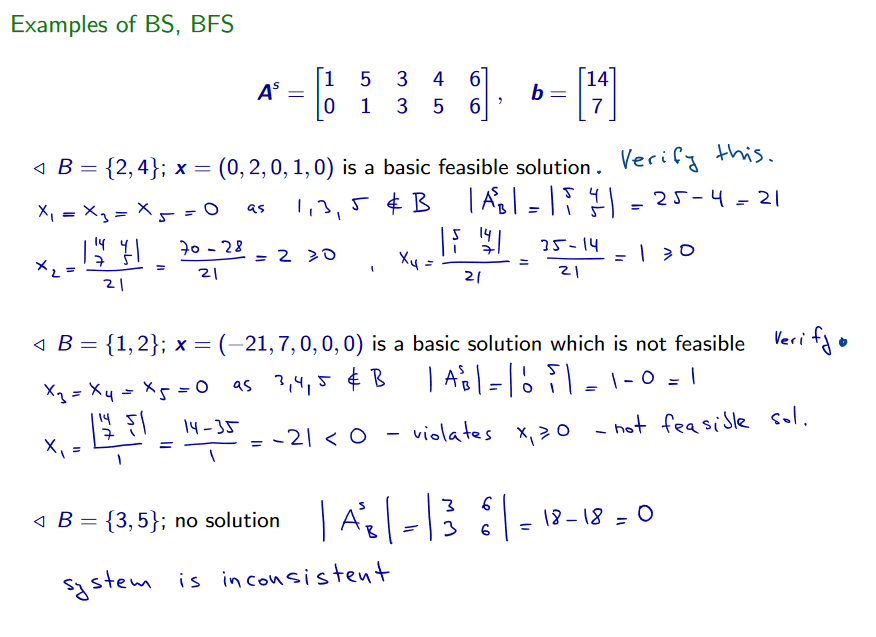 Examples of BS, BFS
A^s = [1 5 3 4 6; 0 1 3 5 6], b = [14; 7]
◁ B = {2, 4}; x = (0, 2, 0, 1, 0) is a basic feasible solution. Verify this.
x₁ = x₃ = x₅ = 0 as 1,3,5 ∉ B |A^s_B| = |5 4; 1 5| = 25-4 = 21
x₂ = |14 4; 7 5| / 21 = 70-28 / 21 = 2 ≥0 , x₄ = |5 14; 1 7| / 21 = 35-14 / 21 = 1 ≥0
◁ B = {1, 2}; x = (−21, 7, 0, 0, 0) is a basic solution which is not feasible Verify.
x₃ = x₄ = x₅ = 0 as 3,4,5 ∉ B |A^s_B| = |1 5; 0 1| = 1-0 = 1
x₁ = |14 5; 7 1| / 1 = 14-35 / 1 = -21 < 0 - violates x₁≥0 - not feasible sol.
◁ B = {3, 5}; no solution |A^s_B| = |3 6; 3 6| = 18-18 = 0
system is inconsistent